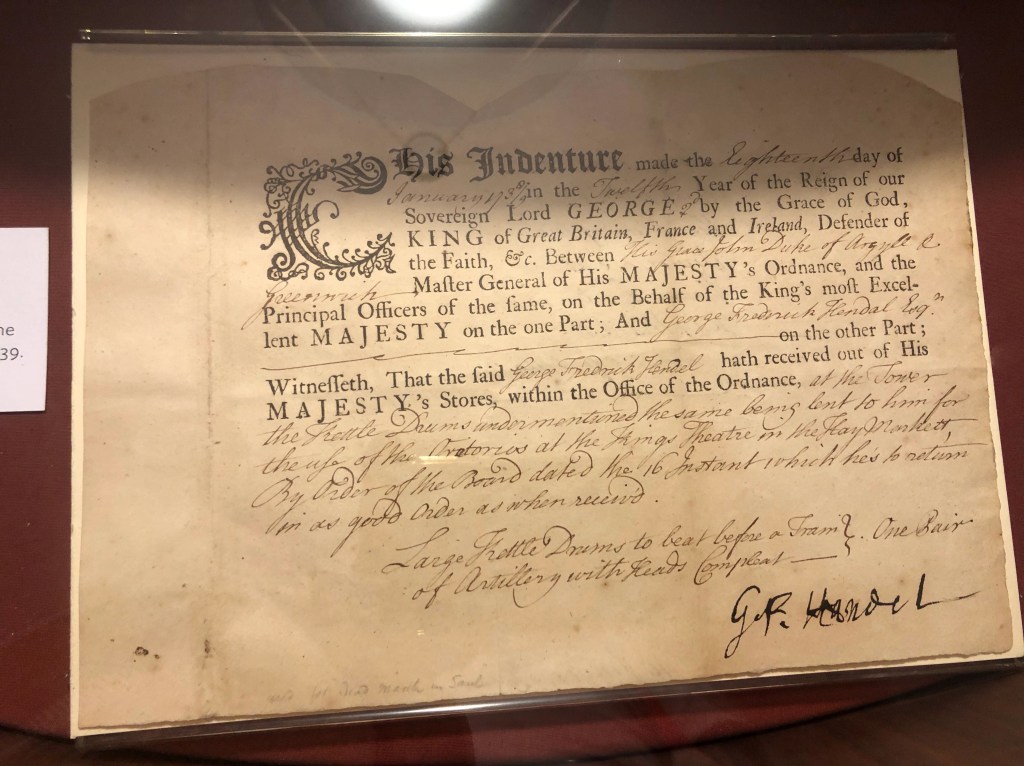 ne
39.
This Indenture made the Eighteenth day of
January 173 8/9 in the Twelfth Year of the Reign of our
Sovereign Lord GEORGE 2d by the Grace of God,
KING of Great Britain, France and Ireland, Defender of
the Faith, &c. Between His Grace John Duke of Argyll &
Greenwich Maſter General of His MAJESTY's Ordnance, and the
Principal Officers of the ſame, on the Behalf of the King's moſt Excel-
lent MAJESTY on the one Part; And George Fredrick Hendal Esqr.
on the other Part;
Witneſſeth, That the ſaid George Fredrick Hendel hath received out of His
MAJESTY's Stores, within the Office of the Ordnance, at the Tower
the Kettle Drums undermentioned the same being lent to him for
the use of the Oratorios at the Kings Theatre in the Hay Markett,
By Order of the Board dated the 16 Instant which he is to return
in as good Order as when receivd.
Large Kettle Drums to beat before a Train } . One Pair
of Artillery with Heads Compleat
G.F. Handel
used for Dead March in Saul